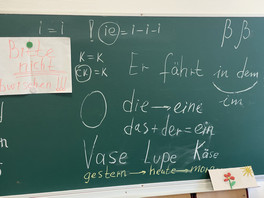 i = i ! ie = i-i-i β β
Bitte
nicht
K = K
CK = K
Er fährt in dem
im
die → eine
das + der = ein
Vase Lupe Käse
gestern → heute → morg